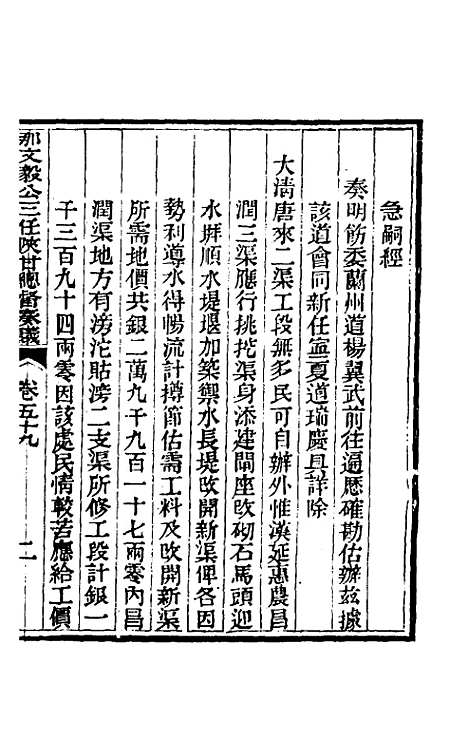 急嗣經
奏明飭委蘭州道楊翼武前往遍歷確勘估辦玆據
該道會同新任寧夏道瑞慶具詳除
大淸唐來二渠工段無多民可自辦外惟漢延惠農昌
潤三渠應行挑挖渠身添建閘座改砌石馬頭迎
水𡎺順水堤堰加築禦水長堤改開新渠俾各因
勢利導水得暢流計撙節估需工料及改開新渠
所需地價共銀二萬九千九百一十七兩零內昌
潤渠地方有滂沱貼滂二支渠所修工段計銀一
千三百九十四兩零因該處民情較苦應給工價
那文毅公三任陝甘總督奏議 卷五十九 二